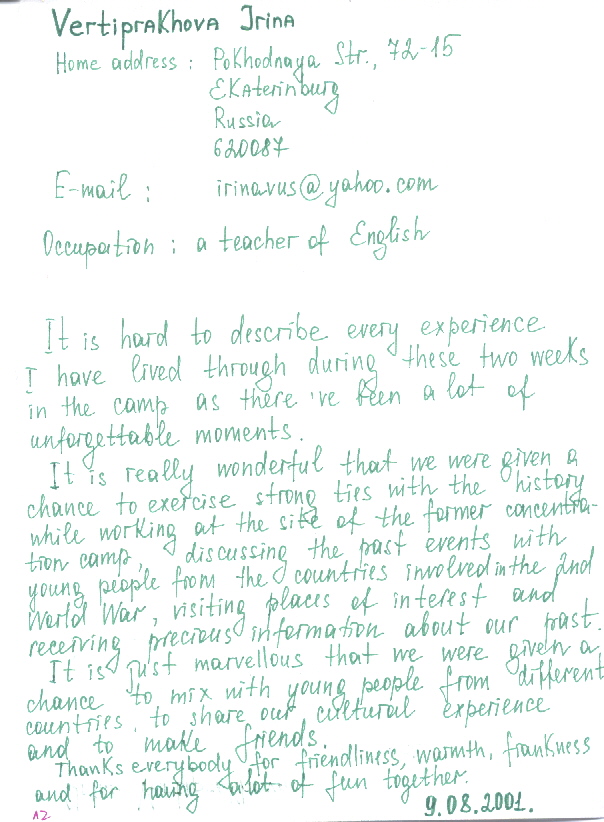 Vertiprakhova Irina
Home address : Pokhodnaya Str., 72-15
Ekaterinburg
Russia
620087
E-mail : irinavus@yahoo.com
Occupation : a teacher of English
It is hard to describe every experience
I have lived through during these two weeks
in the camp as there 've been a lot of
unforgettable moments.
It is really wonderful that we were given a
chance to exercise strong ties with the history
while working at the site of the former concentra-
tion camp, discussing the past events with
young people from the countries involved in the 2nd
World War, visiting places of interest and
receiving precious information about our past.
It is just marvellous that we were given a
chance to mix with young people from different
countries, to share our cultural experience
and to make friends.
Thanks everybody for friendliness, warmth, frankness
and for having a lot of fun together.
9.08.2001.
12